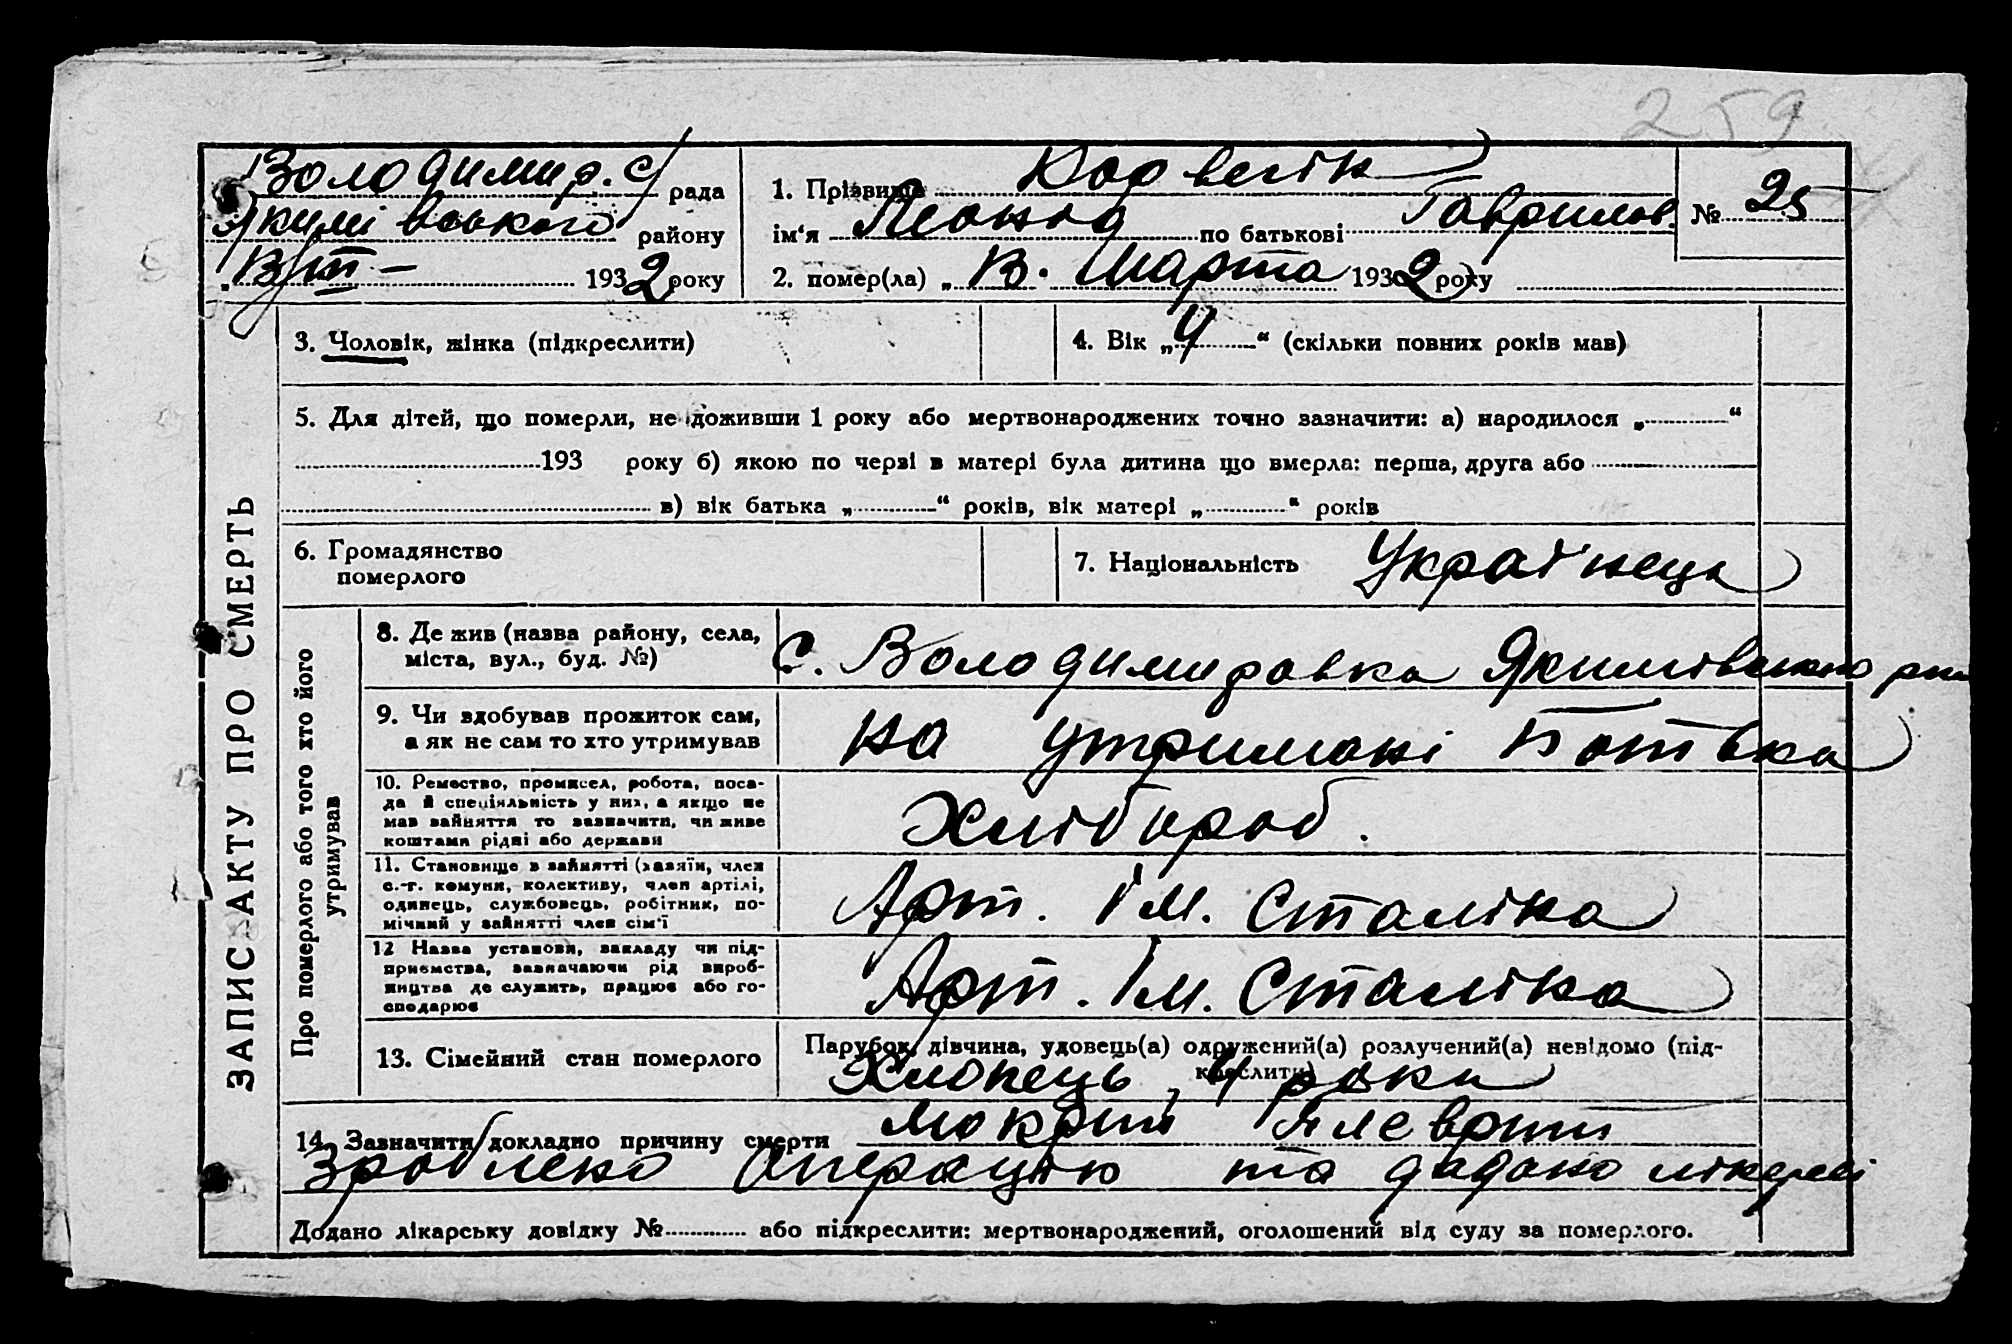 259
Володимир. с/рада
Якимівського району
1932 року
1. Прізвище
ім'я Леонід по батькові Гаврилов.
2. помер(ла) „ Марта 1932 року
№ 25
ЗАПИС АКТУ ПРО СМЕРТЬ
3. Чоловік, жінка (підкреслити)
4. Вік „4“ (скільки повних років мав)
5. Для дітей, що померли, не доживши 1 року або мертвонароджених точно зазначити: а) народилося „ “
193 року б) якою по черзі в матері була дитина що вмерла: перша, друга або
в) вік батька „ “ років, вік матері „ “ років
6. Громадянство
померлого
7. Національність Українець
Про померлого або того хто його
утримував
8. Де жив (назва району, села,
міста, вул., буд. №)
с. Володимировка Якимівського рай
9. Чи здобував прожиток сам,
а як не сам то хто утримував
на утримані Батька
10. Ремество, промисел, робота, поса-
да й спеціяльність у них, а якщо не
мав зайняття то зазначити, чи живе
коштами рідні або держави
Хлібороб.
11. Становище в зайнятті (хазяїн, член
с.-г. комуни, колективу, член артілі,
одинець, службовець, робітник, по-
мічний у зайнятті член сім'ї
Арт. Ім. Сталіна
12 Назва установи, закладу чи під-
приємства, зазначаючи рід вироб-
ництва де служить, працює або го-
сподарює
Арт. Ім. Сталіна
13. Сімейний стан померлого
Парубок, дівчина, удовець(а) одружений(а) розлучений(а) невідомо (під-
креслити)
Хлопець, 4 роки
14. Зазначити докладно причину смерти мокрий плеврит
Зроблено Операцію та додано
Додано лікарську довідку № або підкреслити: мертвонароджений, оголошений від суду за померлого.